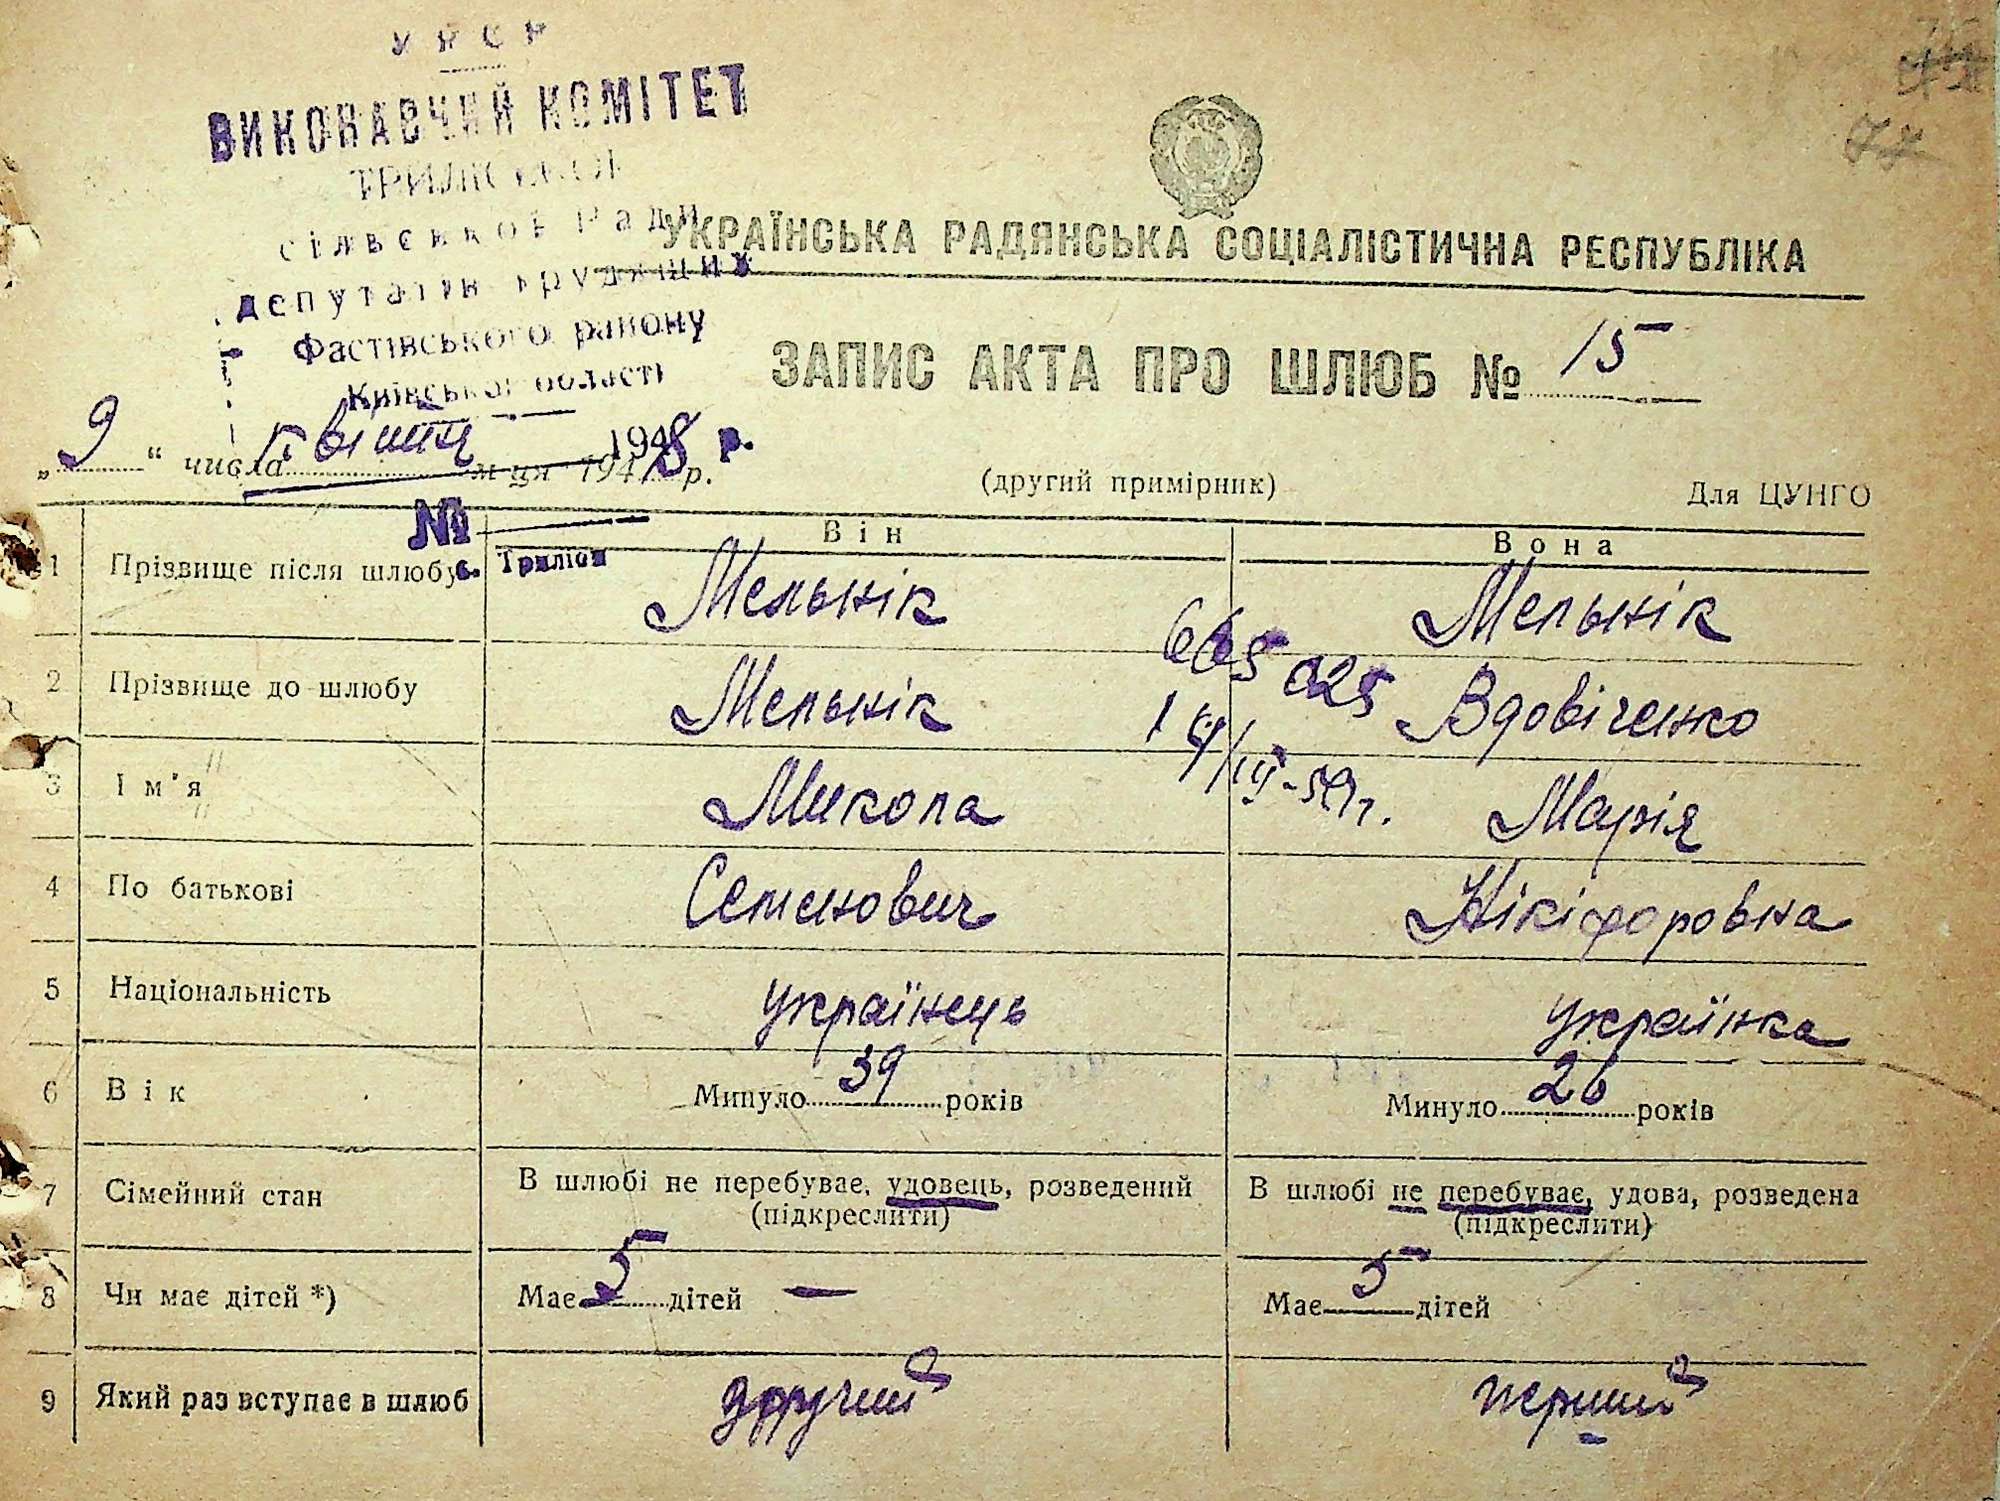 УРСР
ВИКОНАВЧИЙ КОМІТЕТ
ТРИЛІСЬКОЇ
сільської Ради
депутатів трудящих
Фастівського району
Київської області
194 р.
№
с. Триліси
77
УКРАЇНСЬКА РАДЯНСЬКА СОЦІАЛІСТИЧНА РЕСПУБЛІКА
ЗАПИС АКТА ПРО ШЛЮБ № 15
„9“ числа квітня м-ця 1948 р.
(другий примірник)
Для ЦУНГО
Він
Вона
1 Прізвище після шлюбу Мельнік Мельнік
665 025
2 Прізвище до шлюбу Мельнік Вдовіченко
14/III-59г.
3 Ім'я Микола Марія
4 По батькові Семенович Нікіфоровна
5 Національність українець українка
6 Вік Минуло 39 років Минуло 26 років
7 Сімейний стан В шлюбі не перебуває, удовець, розведений В шлюбі не перебуває, удова, розведена
(підкреслити) (підкреслити)
8 Чи має дітей *) Має 5 дітей — Має 5 дітей
9 Який раз вступає в шлюб другий перший